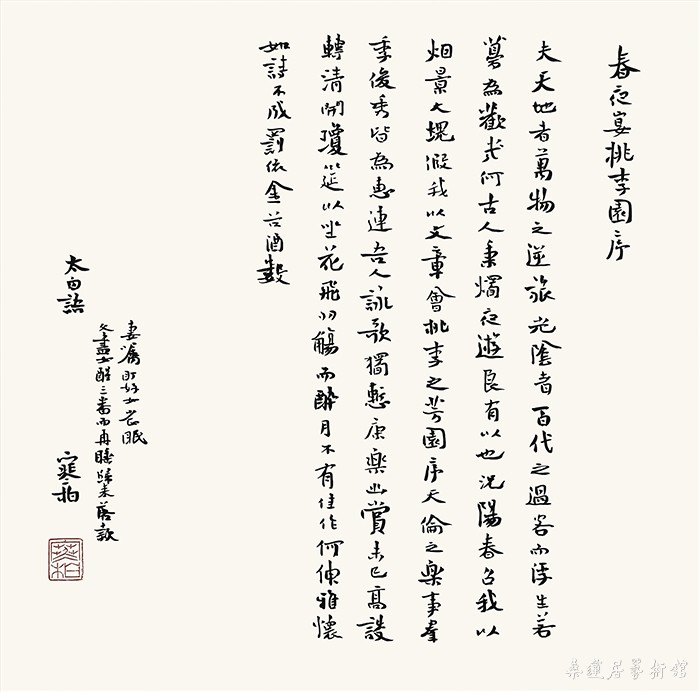 春夜宴桃李園序
夫天地者萬物之逆旅光陰者百代之過客而浮生若
夢為歡幾何古人秉燭夜遊良有以也況陽春召我以
烟景大塊假我以文章會桃李之芳園序天倫之樂事羣
季俊秀皆為惠連吾人詠歌獨慙康樂幽賞未已高談
轉清開瓊筵以坐花飛羽觴而醉月不有佳作何伸雅懷
如詩不成罰依金谷酒數
太白語
妻女眠
盡女醒三番而再睡歸來落款
寒柏
桑蓮居藝術館